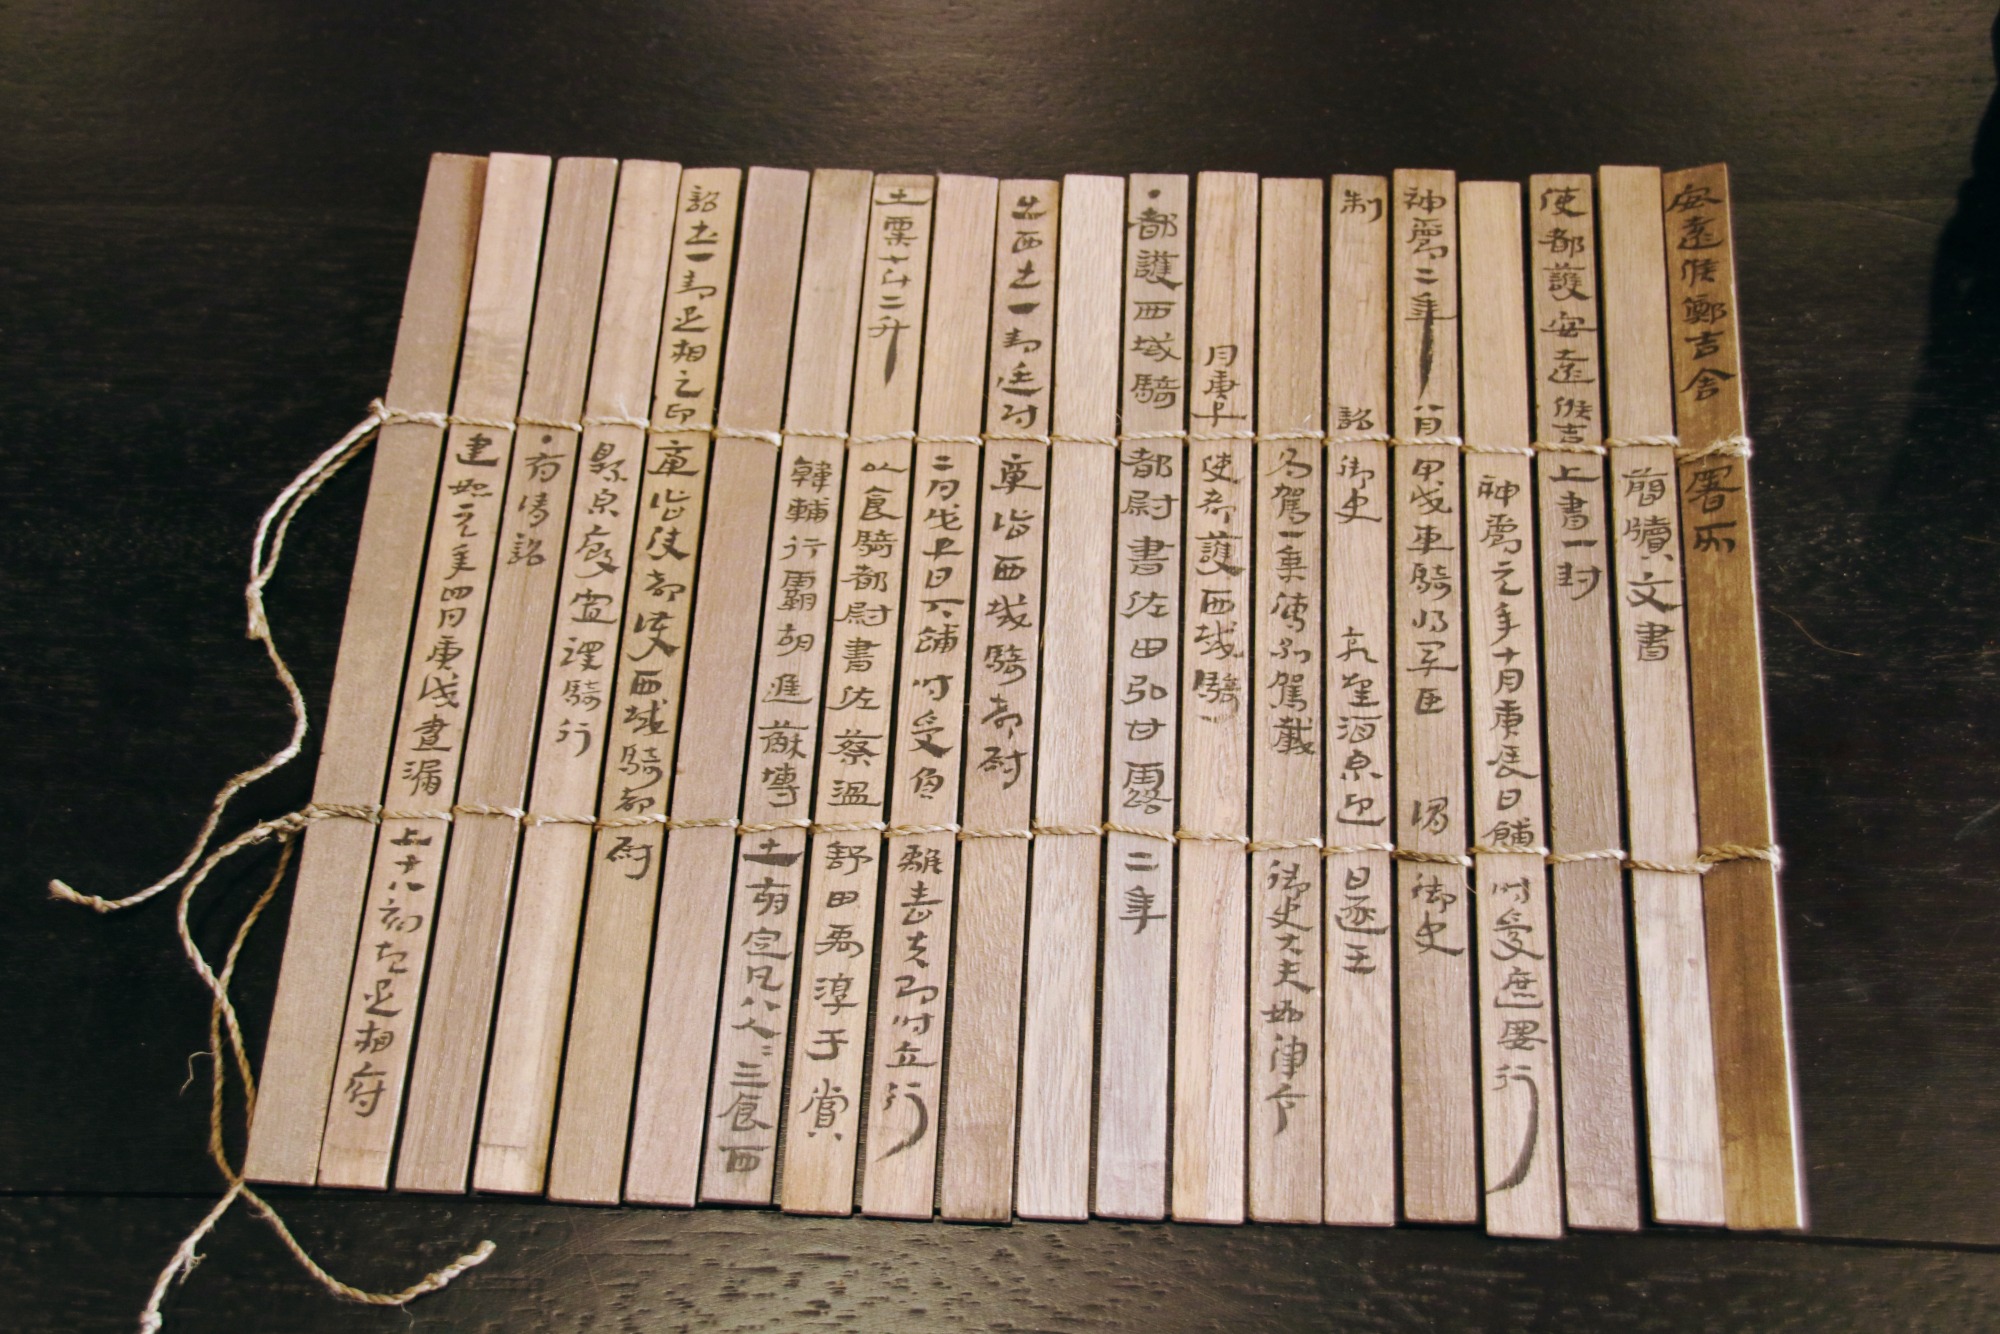 安遠侯鄭吉舍 署所
簡牘文書
使都護安遠侯吉上書一封
神爵元年十月庚辰日餔時受遮要行
神爵二年八月甲戌車騎將軍臣 謂御史
制詔御史 日逐王
為駕一乘傳別駕載 御史大夫如律令
月庚 使都護西域騎
·都護西域騎都尉書佐田弘甘露二年
出西書一封廷尉
章詣西域騎都尉
二月戊 日下餔時受 即時立行
出粟 斗二升 以食騎都尉書佐蔡溫舒田禹淳于賞
韓輔行霸胡進蘇塼 定凡八人=三食西
詔書一封丞相之印章詣使都護西域騎都尉
縣泉廄置 騎行
·有請詔
建始元年四月庚戌晝漏上十八刻起丞相府